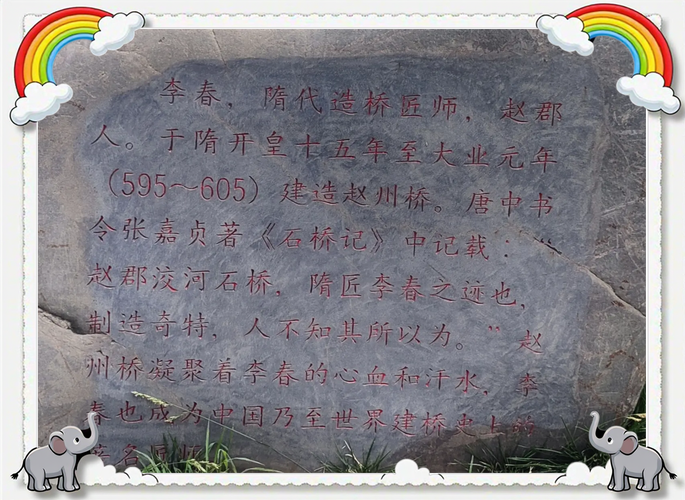 李春，隋代造桥匠师，赵郡
人。于隋开皇十五年至大业元年
（595～605）建造赵州桥。唐中书
令张嘉贞著《石桥记》中记载：“
赵郡洨河石桥，隋匠李春之迹也，
制造奇特，人不知其所以为。”赵
州桥凝聚着李春的心血和汗水，李
春也成为中国乃至世界建桥史上的
名匠师